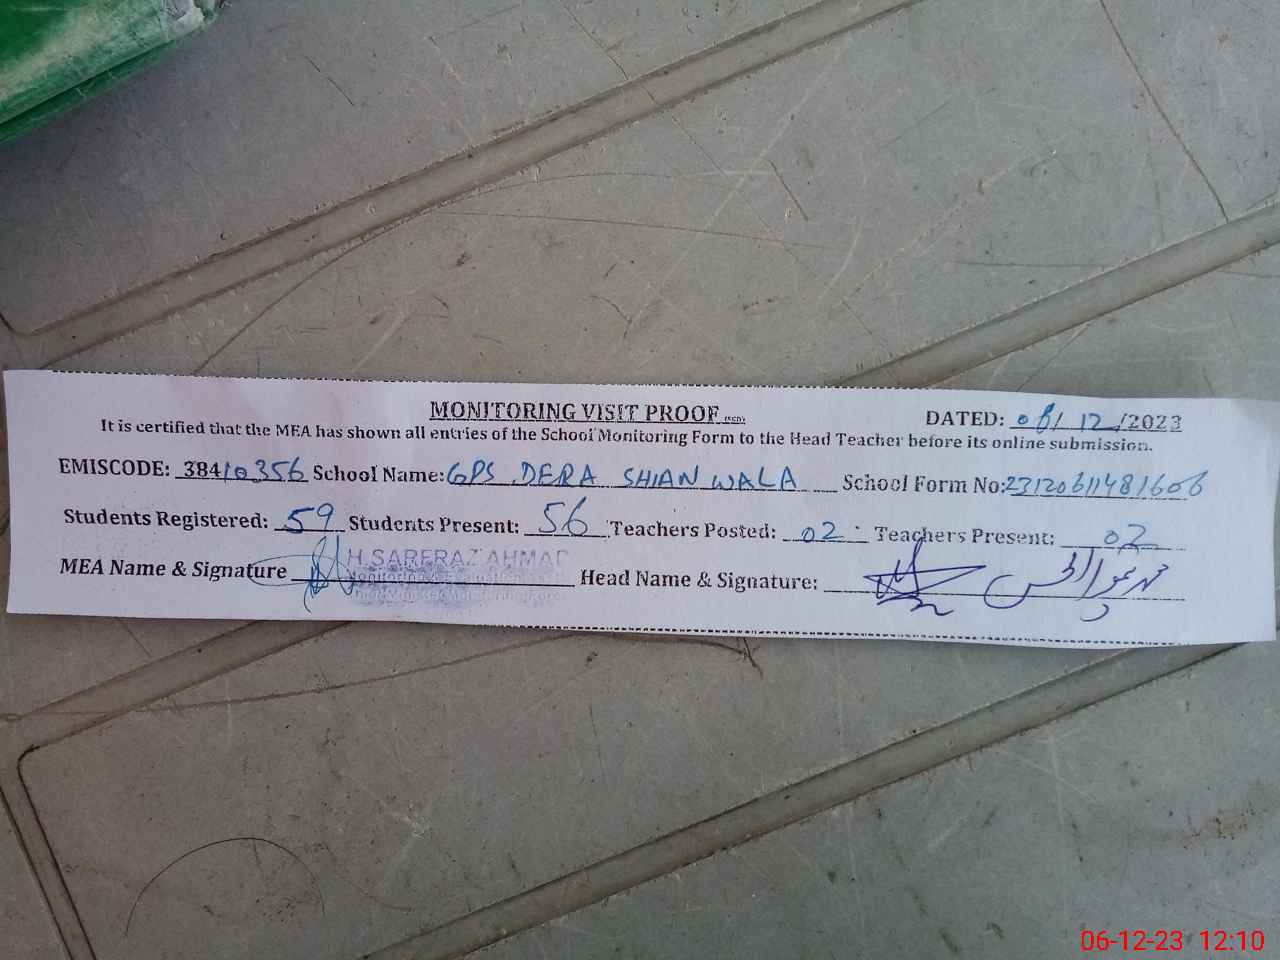 MONITORING VISIT PROOF
DATED: 06/12/2023
It is certified that the MEA has shown all entries of the School Monitoring Form to the Head Teacher before its online submission.
EMISCODE: 38410356 School Name: GPS DERA SHIAN WALA School Form No: 23120611481606
Students Registered: 59 Students Present: 56 Teachers Posted: 02 Teachers Present: 02
MEA Name & Signature H.SARFRAZ AHMAD Head Name & Signature: محمد
06-12-23 12:10